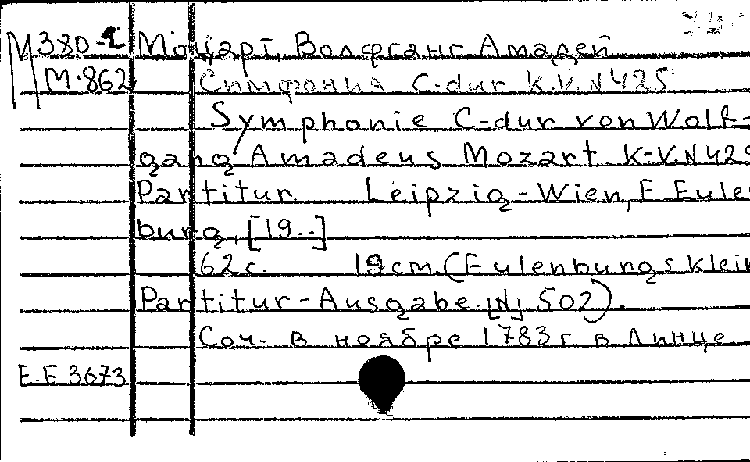 М380-1 Моцарт, Вольфганг Амадей
М-862 Симфония C-dur K.V.N425
Symphonie C-dur von Wolf-
gang Amadeus Mozart K-V.N425
Partitur Leipzig-Wien, E. Eulen
burg, [19..]
62 с. 19 cm. (Eulenburgs klein
Partitur-Ausgabe. [N] 502).
Соч. в ноябре 1783 г в Линце
E.E 3673